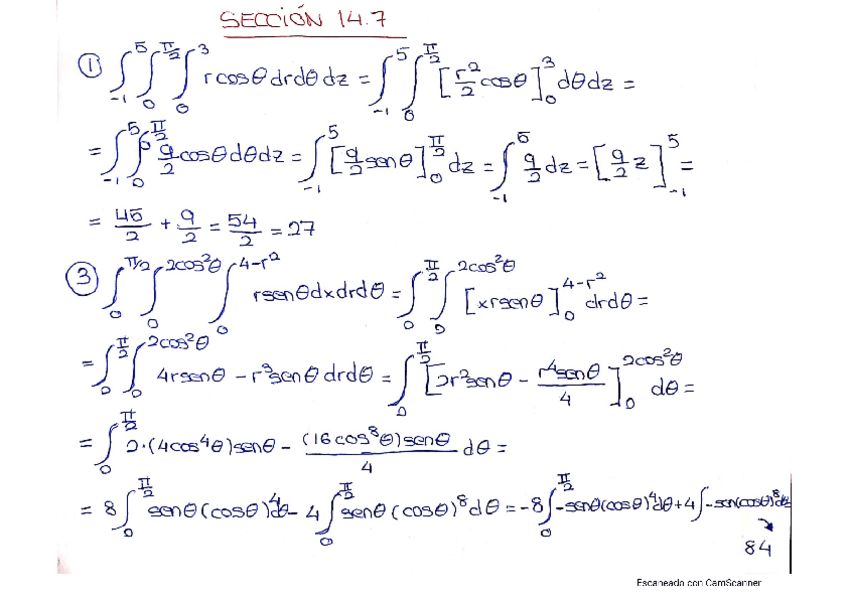 SECCIÓN 14.7
① ∫₋₁⁵ ∫₀^(π/2) ∫₀³ r cosθ dr dθ dz = ∫₋₁⁵ ∫₀^(π/2) [r²/2 cosθ]₀³ dθ dz =
= ∫₋₁⁵ ∫₀^(π/2) 9/2 cosθ dθ dz = ∫₋₁⁵ [9/2 senθ]₀^(π/2) dz = ∫₋₁⁵ 9/2 dz = [9/2 z]₋₁⁵ =
= 45/2 + 9/2 = 54/2 = 27
③ ∫₀^(π/2) ∫₀^(2cos²θ) ∫₀^(4-r²) r senθ dx dr dθ = ∫₀^(π/2) ∫₀^(2cos²θ) [x r senθ]₀^(4-r²) dr dθ =
= ∫₀^(π/2) ∫₀^(2cos²θ) 4r senθ - r³ senθ dr dθ = ∫₀^(π/2) [2r² senθ - r⁴ senθ/4]₀^(2cos²θ) dθ =
= ∫₀^(π/2) 2·(4cos⁴θ) senθ - (16cos⁸θ) senθ/4 dθ =
= 8 ∫₀^(π/2) senθ (cosθ)⁴ dθ - 4 ∫₀^(π/2) senθ (cosθ)⁸ dθ = -8 ∫₀^(π/2) -senθ (cosθ)⁴ dθ + 4 ∫ -sen (cosθ)⁸ dθ
84
Escaneado con CamScanner